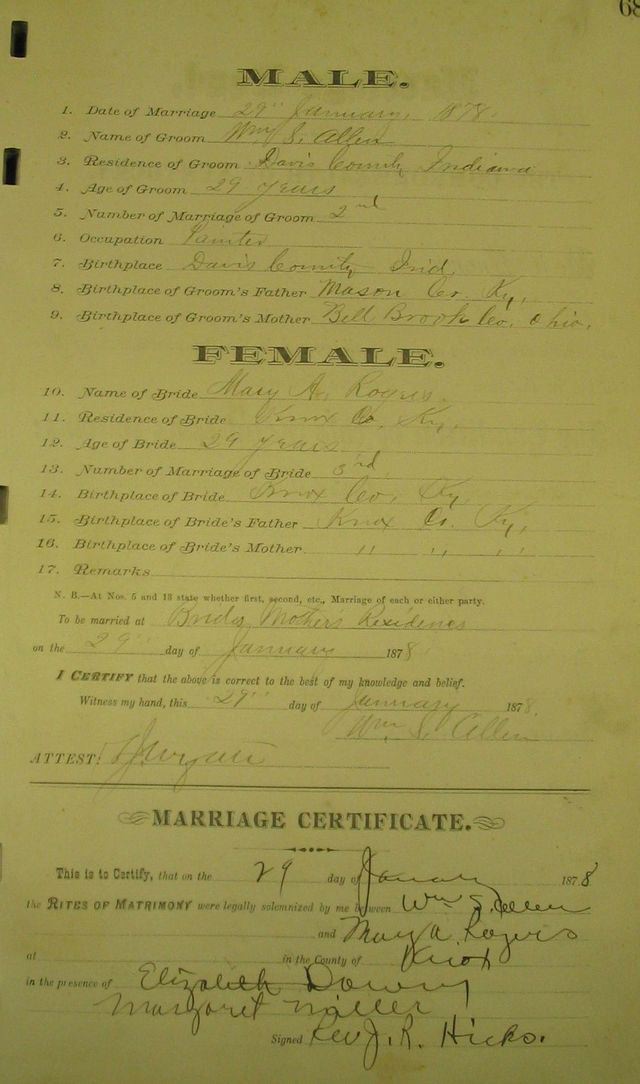 68
MALE.
1. Date of Marriage 29" January, 1878.
2. Name of Groom Wm S. Allen
3. Residence of Groom Davis County Indiana
4. Age of Groom 29 years
5. Number of Marriage of Groom 2nd
6. Occupation Painter
7. Birthplace Davis County Ind
8. Birthplace of Groom's Father Mason Co. Ky,
9. Birthplace of Groom's Mother Bell Brook Co. Ohio.
FEMALE.
10. Name of Bride Mary A. Rogers.
11. Residence of Bride Knox Co. Ky.
12. Age of Bride 29 years
13. Number of Marriage of Bride 3rd
14. Birthplace of Bride Knox Co. Ky
15. Birthplace of Bride's Father Knox Co. Ky,
16. Birthplace of Bride's Mother " " "
17. Remarks
N. B.—At Nos. 5 and 13 state whether first, second, etc., Marriage of each or either party.
To be married at Brids Mothers Residence
on the 29" day of January 1878
I CERTIFY that the above is correct to the best of my knowledge and belief.
Witness my hand, this 29" day of January 1878.
Wm S. Allen
ATTEST:
MARRIAGE CERTIFICATE.
This is to Certify, that on the 29 day of January 1878
the RITES OF MATRIMONY were legally solemnized by me between Wm S. Allen
and Mary A. Rogers
at in the County of Knox
in the presence of Elizabeth Downy
Margaret Miller
Signed Rev J. R. Hicks.